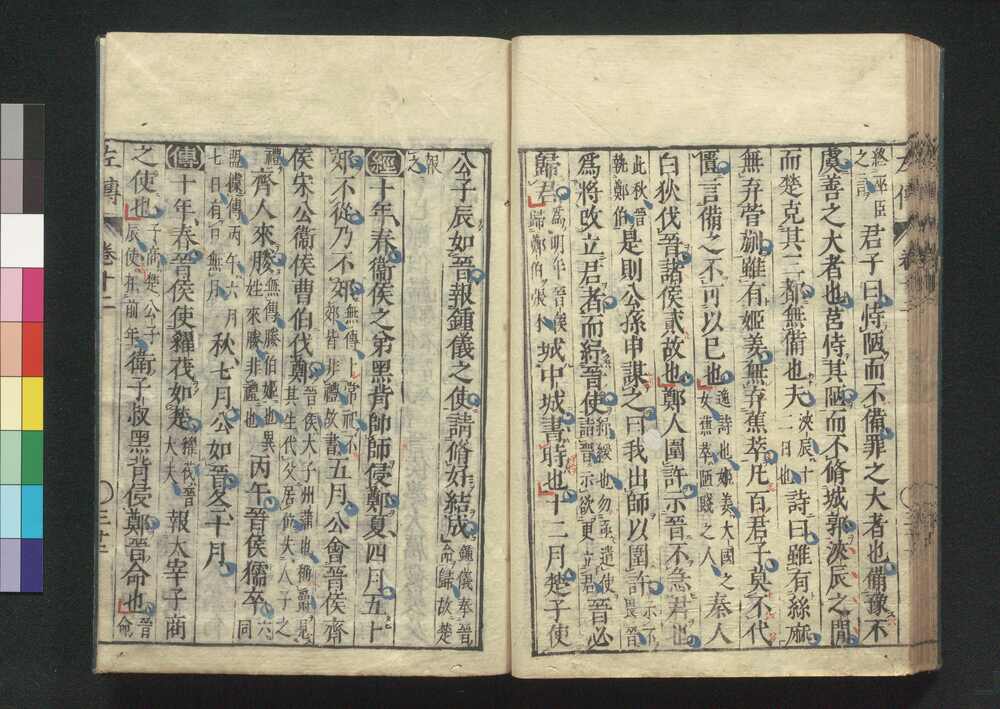 終巫臣之言君子曰恃陋而不備罪之大者也備豫不
虞善之大者也莒恃其陋而不脩城郭浹辰之間
而楚克其三都無備也夫浹辰十二日也詩曰雖有絲麻
無弃菅蒯雖有姬姜無弃蕉萃凡百君子莫不代
匱言備之不可以已也逸詩也姬姜大國之女蕉萃陋賤之人秦人
白狄伐晉諸侯貳故也鄭人圍許示晉不急君也
此秋晉執鄭伯是則公孫申謀之曰我出師以圍許示不畏晉
爲將改立君者而紓晉使紓緩也勿亟遣使詣晉示欲更立君晉必
歸君爲明年晉侯歸鄭伯張本城中城書時也十二月楚子使
公子辰如晉報鍾儀之使請脩好結成鍾儀奉晉命歸故楚
報之
經十年春衞侯之弟黑背帥師侵鄭夏四月五卜
郊不從乃不郊無傳卜常祀不郊皆非禮故書五月公會晉侯齊
侯宋公衞侯曹伯伐鄭晉侯大子州蒲也稱爵見其生代父居位失人子之
禮齊人來媵無傳媵伯姬也異姓來媵非禮也丙午晉侯獳卒六同
盟據傳丙午六月七日有日無月秋七月公如晉冬十月
傳十年春晉侯使糴茷如楚糴茷晉大夫報太宰子商
之使也子商楚公子辰使在前年衞子叔黑背侵鄭晉命也晉命
左傳 卷十二